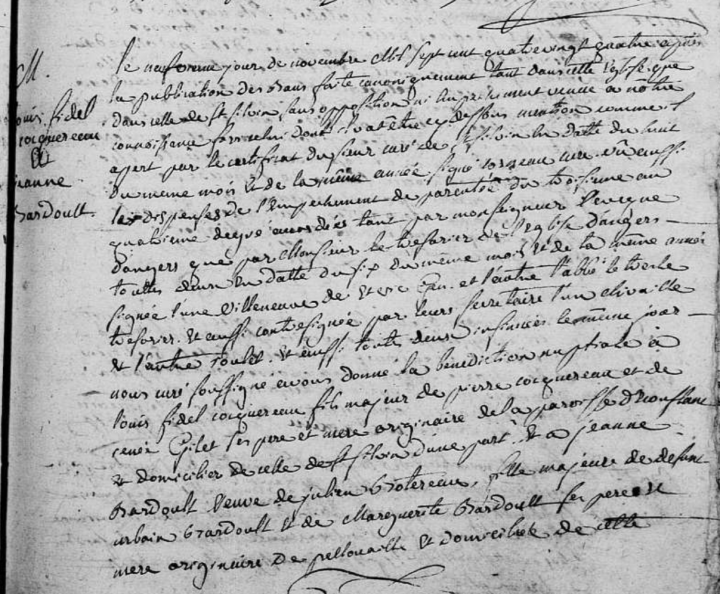 M.
Louis fidel
cocquereau
&
jeanne
Bardoult
le neufieme jour de novembre Mil sept cent quatre vingt quatre apres
la publication des bans faite canoniquement tant dans cette Eglise que
dans celle de St silvin sans opposition ni empechement venue a notre
connoissance fors celui dont il va etre cy dessous mention comme il
apert par le certificat du sieur curé de St silvin en datte du huit
du meme mois & de la même année signé curé. vû aussi
les dispenses de l'empechement de parenté du troisieme au
quatrieme degré accordées tant par monseigneur l'eveque
d'angers que par Monsieur le tresorier de l'eglise d'angers
touttes deux en datte du six du même mois & de la même année
signée l'une villeneuve et l'autre l'abbé
tresorier. & aussi contresignée par leurs secretaire l'un chevallé
& l'autre & aussi touttes deux insinuées le même jour
nous curé soussigné avons donné la benediction nuptiale à
Louis fidel cocquereau fils majeur de pierre cocquereau et de
renée Gilet ses pere et mere originaire de la paroisse
& domicilier de celle de St silvin d'une part. & a jeanne
Bardoult veuve de julien fille majeure de defunt
urbain Bardoult & de Marguerite Bardoult ses pere &
mere originaire de pellouaille & domiciliée de cette